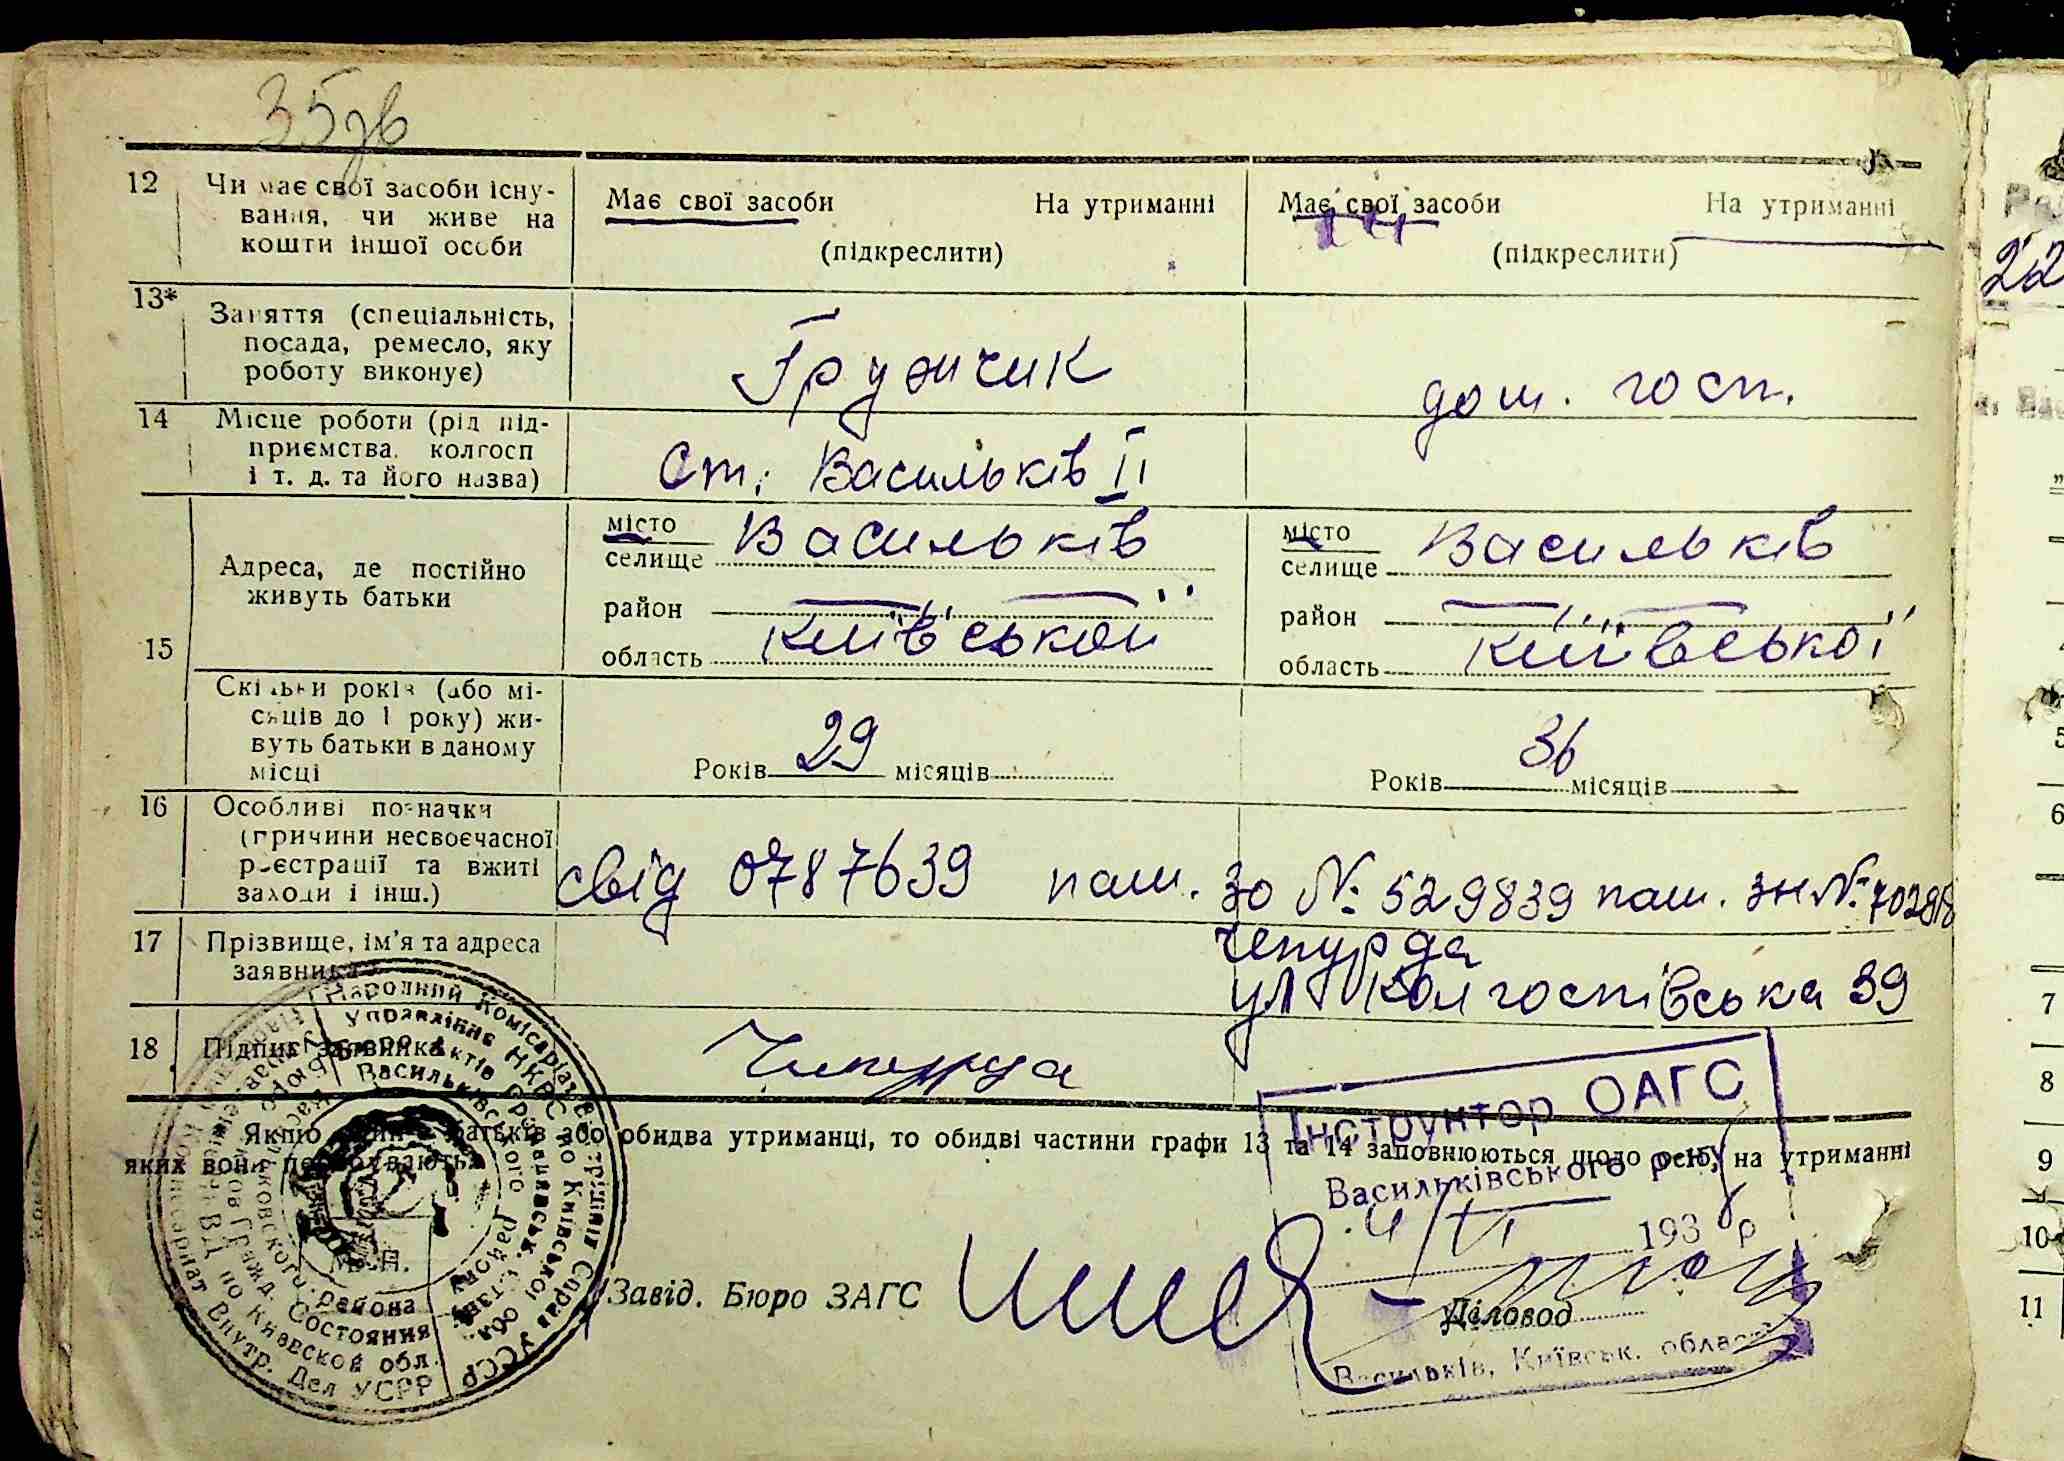 35зв
12 Чи має свої засоби існу-
вання, чи живе на
кошти іншої особи
Має свої засоби На утриманні
(підкреслити)
Має свої засоби На утриманні
(підкреслити)
13* Заняття (спеціальність,
посада, ремесло, яку
роботу виконує)
Грузчик
дом. госп.
14 Місце роботи (рід під-
приємства, колгосп
і т. д. та його назва)
Ст. Васильків II
15
Адреса, де постійно
живуть батьки
місто
селище Васильків
район
область Київської
місто
селище Васильків
район
область Київської
Скільки років (або мі-
сяців до 1 року) жи-
вуть батьки в даному
місці
Років 29 місяців
Років 36 місяців
16 Особливі позначки
(причини несвоєчасної
реєстрації та вжиті
заходи і інш.)
свід 0787639 паш. ЗО № 529839 паш. ЗН №
17 Прізвище, ім'я та адреса
заявника
Чепурда
ул Колгоспівська 39
18 Підпис заявника
Чепурда
Якщо батьків або обидва утриманці, то обидві частини графи 13 та 14 заповнюються щодо осіб, на утриманні
яких вони перебувають
Народний Комісаріат Внутрішніх Справ УСРР
Управління НКВС по Київській обл.
Васильківського району
района
Состояния
по Киевской обл.
Внутр. Дел УСРР
М. П.
Завід. Бюро ЗАГС
Інструктор ОАГС
Васильківського р-ну
193 р
Діловод
Васильків, Київськ. області
22
5
6
7
8
9
10
11